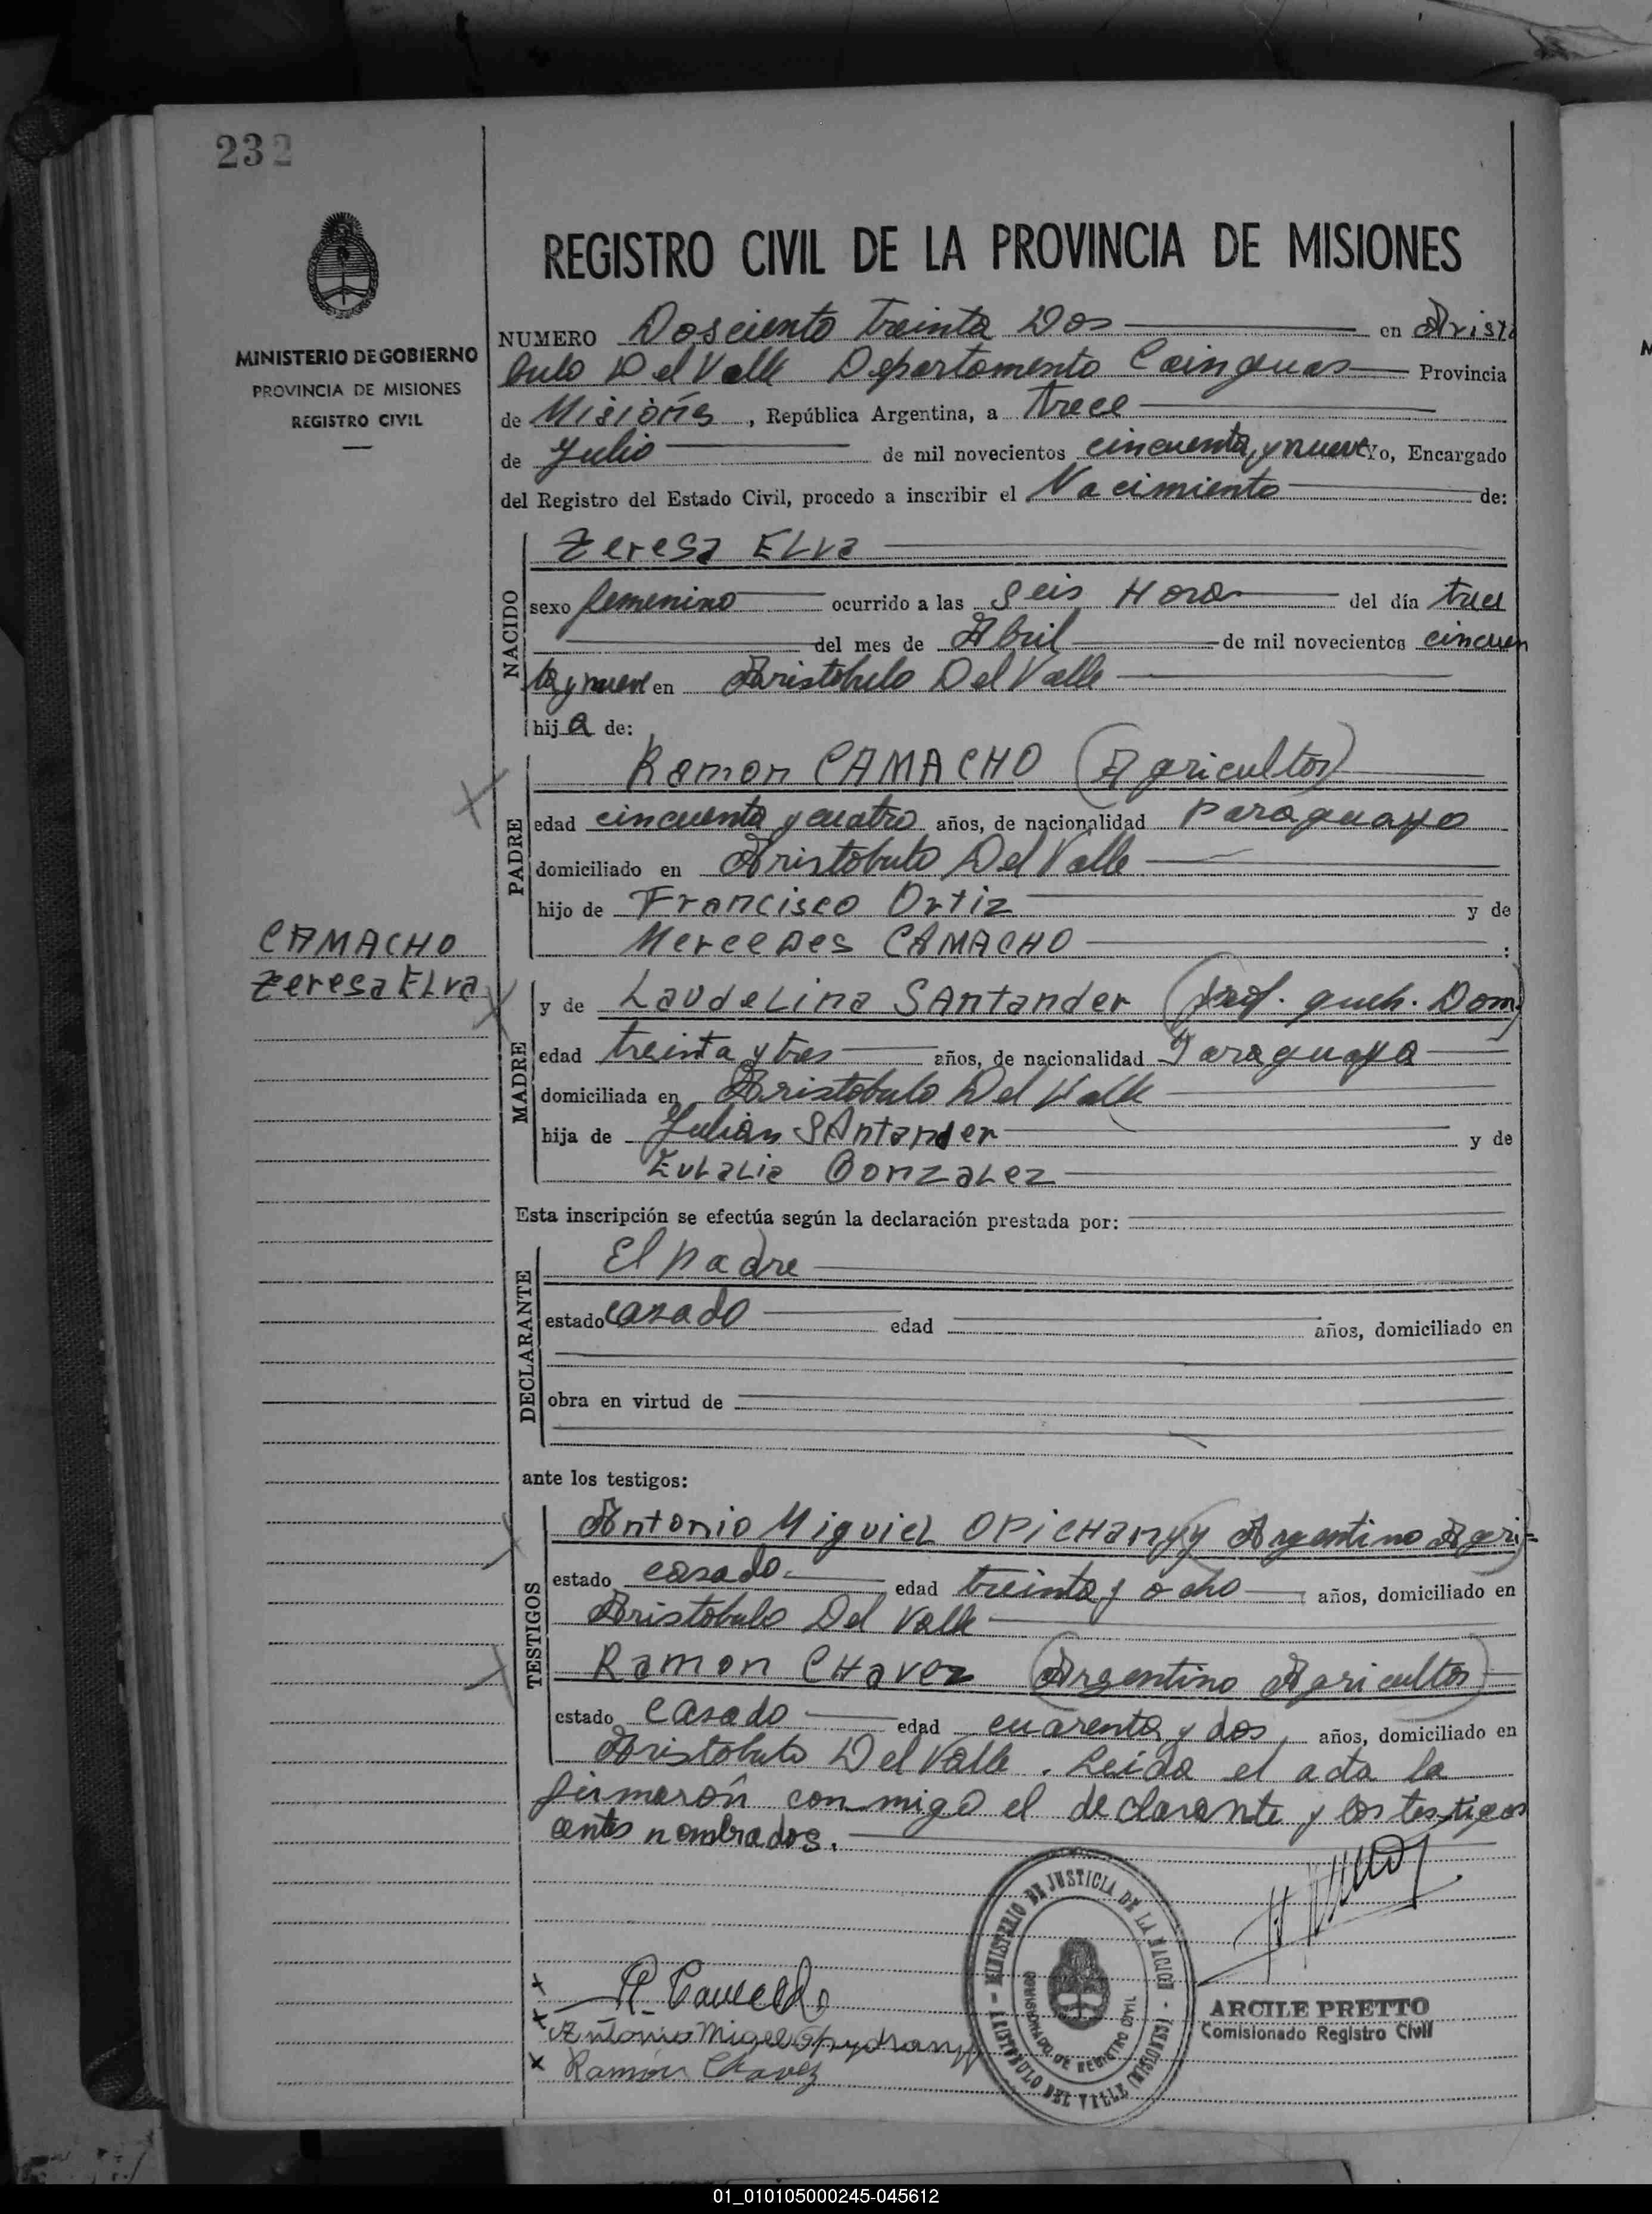 232
MINISTERIO DE GOBIERNO
PROVINCIA DE MISIONES
REGISTRO CIVIL
REGISTRO CIVIL DE LA PROVINCIA DE MISIONES
NUMERO Dosciento Treinta Dos en Aristo
bulo Del Valle Departamento Cainguas Provincia
de Misiones, República Argentina, a trece
de Julio de mil novecientos cincuenta y nueve Yo, Encargado
del Registro del Estado Civil, procedo a inscribir el Nacimiento de:
NACIDO
Teresa ELva
sexo femenino ocurrido a las Seis Hora del día trece
del mes de Abril de mil novecientos cincuen
ta y nueve en Aristobulo Del Valle
hij a de:
PADRE
Ramon CAMACHO (Agricultor)
edad cincuenta y cuatro años, de nacionalidad Paraguayo
domiciliado en Aristobulo Del Valle
hijo de Francisco Ortiz y de
Mercedes CAMACHO :
CAMACHO
Teresa ELva
MADRE
y de LaudeLina SAntander (prof. queh. Dom)
edad treinta y tres años, de nacionalidad Paraguaya
domiciliada en Aristobulo Del Valle
hija de Julian SAntander y de
EuLaLia GonzaLez
Esta inscripción se efectúa según la declaración prestada por:
DECLARANTE
El padre
estado casado edad años, domiciliado en
obra en virtud de
ante los testigos:
TESTIGOS
Antonio MiguieL OPiCHanyy Argentino Agri)=
estado casado edad treinta y ocho años, domiciliado en
Aristobulo Del Valle
Ramon CHavez (Argentino Agricultor)
estado Casado edad cuarenta y dos años, domiciliado en
Aristobulo Del Valle. Leida el acta la
firmarón conmigo el declarante y los testigos
antes nombrados.
MINISTERIO DE JUSTICIA DE LA NACION - ARISTOBULO DEL VALLE (MISIONES) -
COMISIONADO DE REGISTRO CIVIL
ARCILE PRETTO
Comisionado Registro Civil
Ramón Chavez
01_010105000245-045612